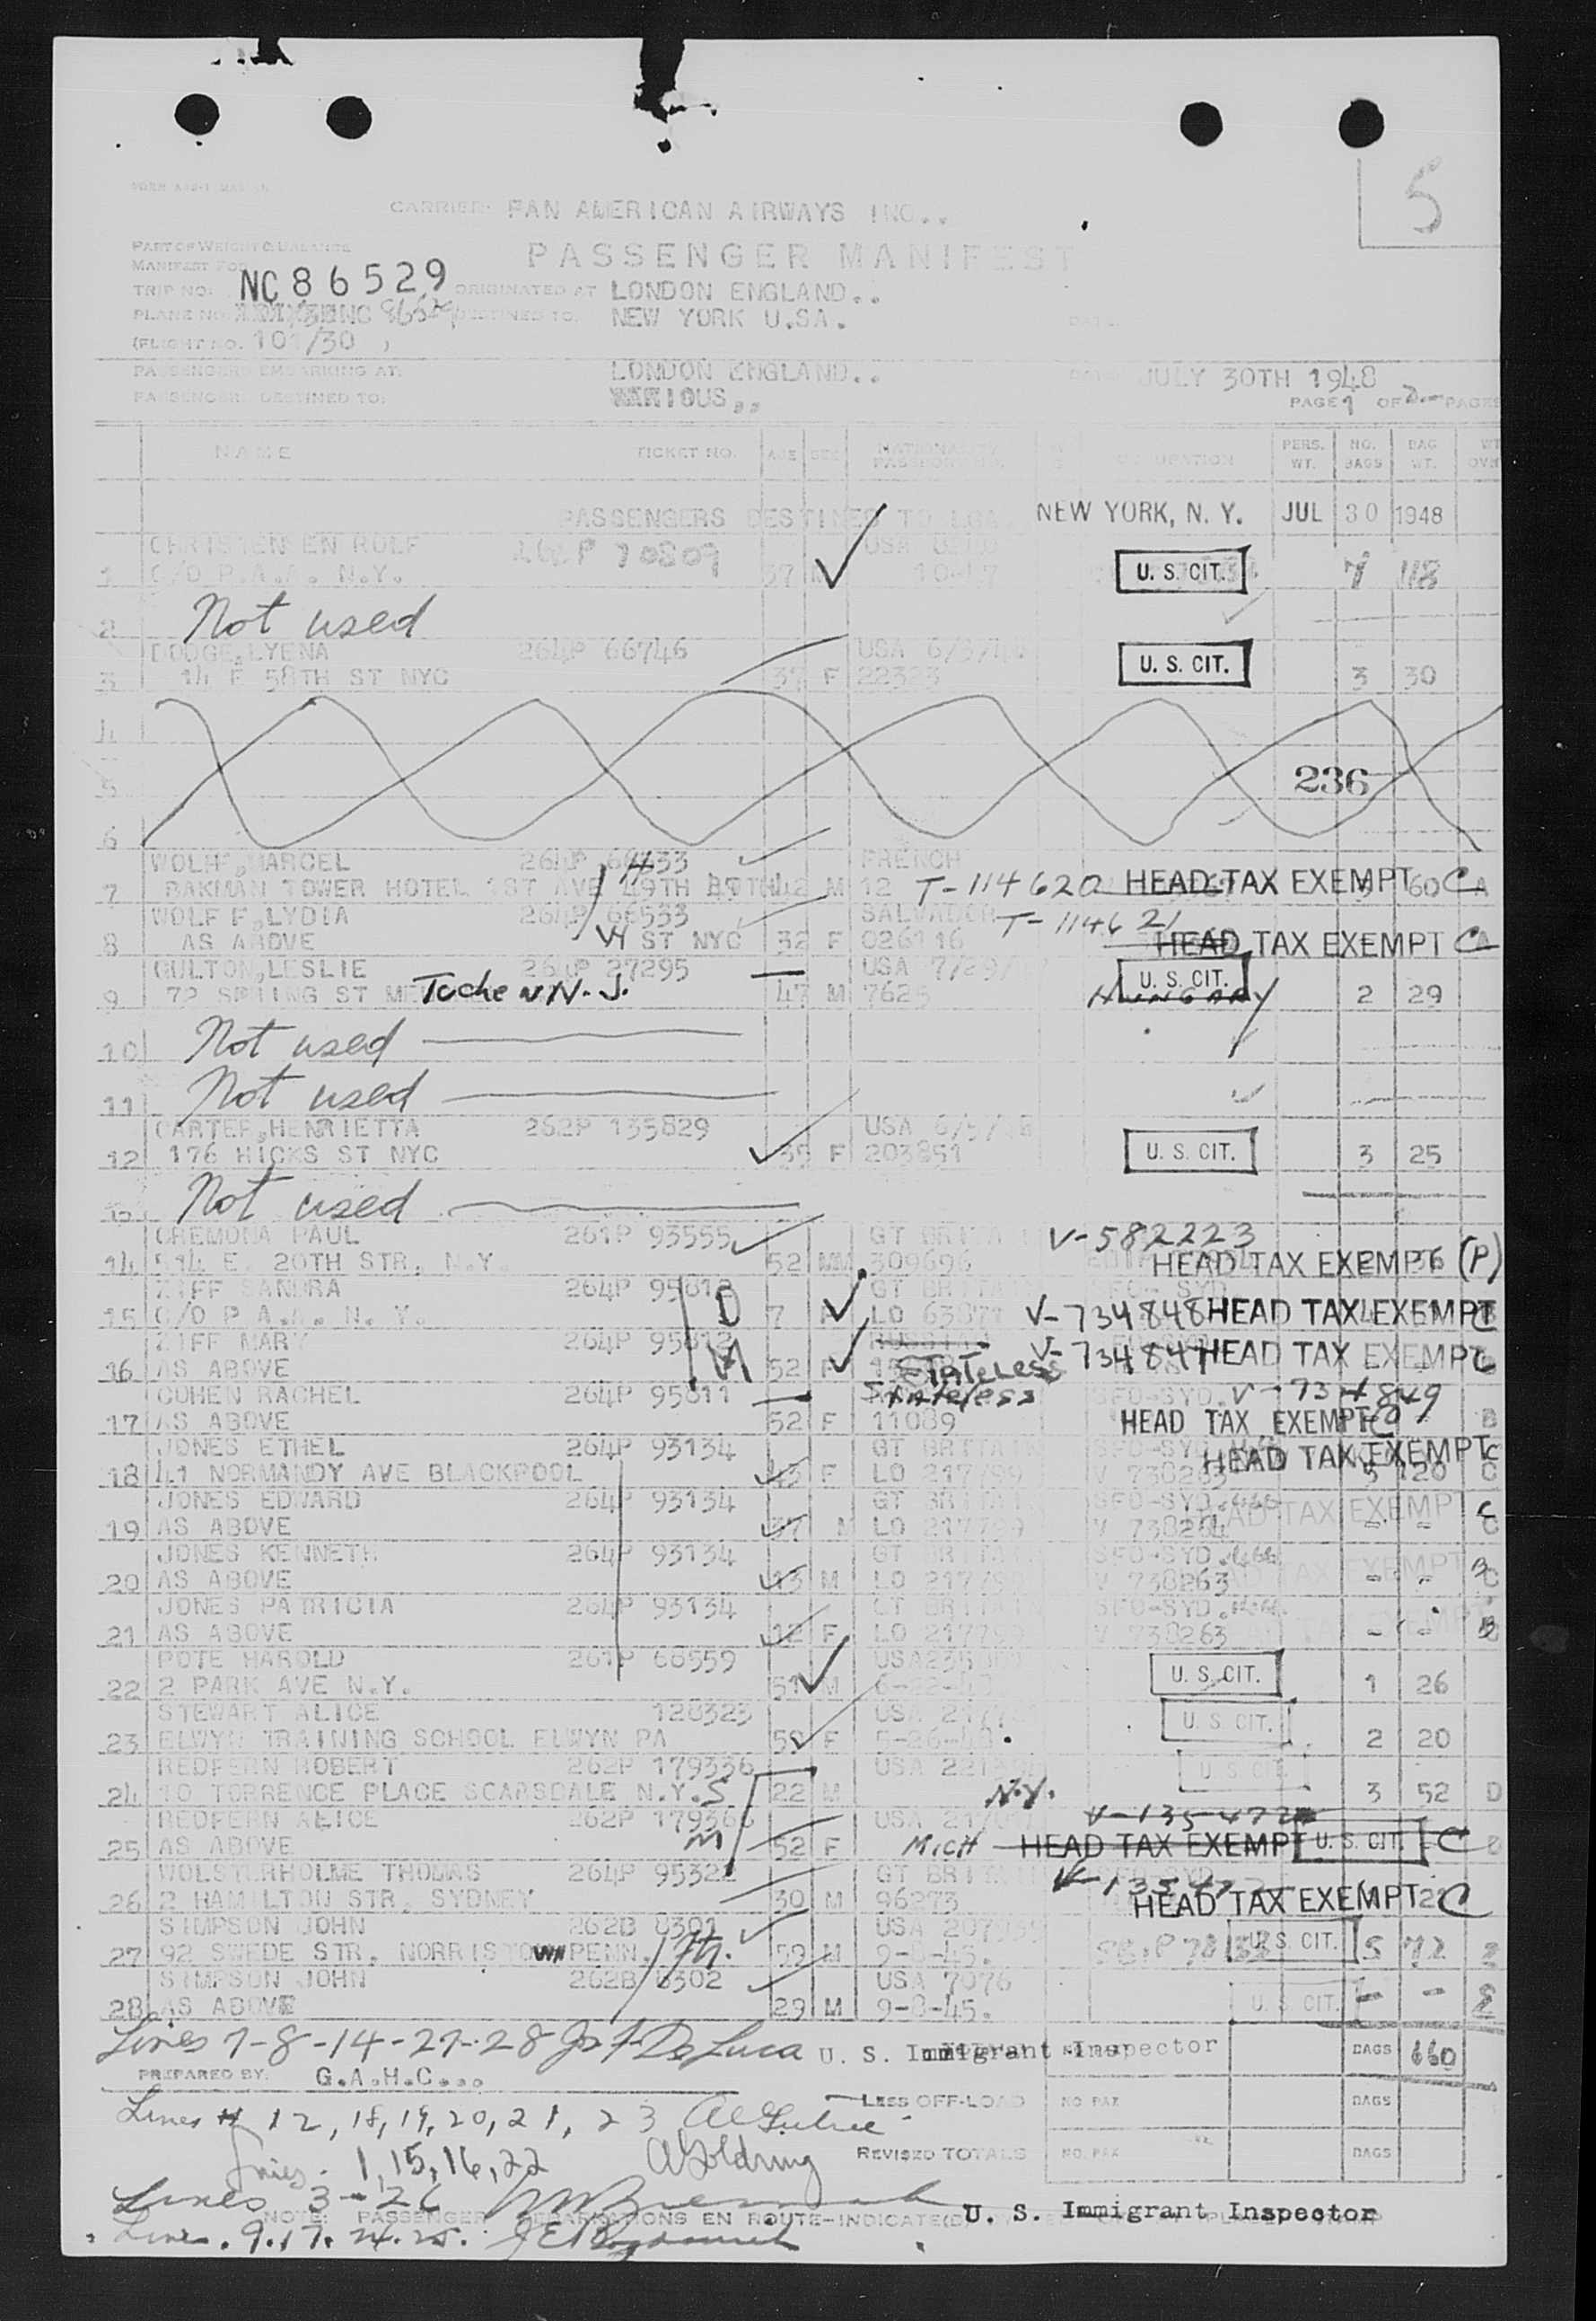 5
CARRIER: PAN AMERICAN AIRWAYS INC..
PART OF WEIGHT & BALANCE
PASSENGER MANIFEST
MANIFEST FOR
TRIP NO. NC 86529 ORIGINATED AT LONDON ENGLAND..
PLANE NO. NC 86529 DESTINED TO: NEW YORK U.SA.
(FLIGHT NO. 101/30 )
PASSENGERS EMBARKING AT: LONDON ENGLAND.. DATE JULY 30TH 1948
PASSENGERS DESTINED TO: VARIOUS,, PAGE 1 OF 2 PAGES
NAME TICKET NO. AGE SEX NATIONALITY PASSPORT NO. OCCUPATION PERS. WT. NO. BAGS BAG WT. WT OVR
PASSENGERS DESTINED TO LGA. NEW YORK, N. Y. JUL 30 1948
CHRISTENSEN ROLF 264P 70809 USA
1 C/O P.A.A. N.Y. 37 U. S. CIT. 7 118
2 Not used
DODGE,LYENA 264P 66746 USA 6/3/48
3 14 E 58TH ST NYC 37 F 22323 U. S. CIT. 3 30
4
5 236
6
WOLFF,MARCEL 264P 66533 FRENCH
7 BAKMAN TOWER HOTEL 1ST AVE 49TH 42 M 12 T-114620 HEAD TAX EXEMPT 60 C A
WOLF F,LYDIA 264P 66533 SALVADOR T-114621
8 AS ABOVE W ST NYC 32 F 026116 HEAD TAX EXEMPT C A
GULTON,LESLIE 264P 27295 USA 7/29/
9 72 SPRING ST ME Tuchen N.J. 47 M 7625 U. S. CIT. HUNGARY 2 29
10 Not used
11 Not used
CARTER,HENRIETTA 262P 135829 USA 6/5/48
12 176 HICKS ST NYC 35 F 203851 U. S. CIT. 3 25
13 Not used
CREMONA PAUL 261P 93555 GT BRITAIN V-582223
14 514 E. 20TH STR. N.Y. 52 M 309696 HEAD TAX EXEMPT 2 36 (P)
ZIFF SANDRA 264P 95612 D GT BRITAIN SFO-SYD
15 C/O P.A.A. N. Y. 7 F LO 63871 V-734848 HEAD TAX EXEMPT C
ZIFF MARY 264P 95612 RUSSIAN
16 AS ABOVE M 52 F Stateless V-734847 HEAD TAX EXEMPT C
COHEN RACHEL 264P 95611 Stateless SFO-SYD. V-734849
17 AS ABOVE 52 F 11089 HEAD TAX EXEMPT C B
JONES ETHEL 264P 93134 GT BRITAIN SFO-SYD
18 41 NORMANDY AVE BLACKPOOL 43 F LO 217799 V 738263 HEAD TAX EXEMPT 5 120 C
JONES EDWARD 264P 93134 GT BRITAIN SFO-SYD.
19 AS ABOVE 37 M LO 217799 V 738264 HEAD TAX EXEMPT - - C
JONES KENNETH 264P 93134 GT BRITAIN SFO-SYD.
20 AS ABOVE 13 M LO 217798 V 738263 HEAD TAX EXEMPT - - C
JONES PATRICIA 264P 93134 GT BRITAIN SFO-SYD.
21 AS ABOVE 12 F LO 217799 V 738263 HEAD TAX EXEMPT - - B
POTE HAROLD 261P 68559 USA
22 2 PARK AVE N.Y. 51 M U. S. CIT. 1 26
STEWART ALICE 128323 USA
23 ELWYN TRAINING SCHOOL ELWYN PA 59 F 5-26-48. U. S. CIT. 2 20
REDFERN ROBERT 262P 179336 USA
24 10 TORRENCE PLACE SCARSDALE N.Y. S 22 M N.Y. U. S. CIT. 3 52 D
REDFERN ALICE 262P 179366 USA V-135472
25 AS ABOVE M 52 F MICH HEAD TAX EXEMPT U. S. CIT. C D
WOLSTERHOLME THOMAS 264P 95322 GT BRITAIN SFO-SYD
26 2 HAMILTON STR, SYDNEY 30 M 96273 V-135472 HEAD TAX EXEMPT C
SIMPSON JOHN 262B 8301 USA
27 92 SWEDE STR. NORRISTOWN PENN. 59 M 9-8-45. U. S. CIT. 5 72
SIMPSON JOHN 262B 8302 USA 7076
28 AS ABOVE 29 M 9-8-45. U. S. CIT. - -
Lines 7-8-14-27-28 Jos F De Luca U. S. Immigrant Inspector BAGS 660
PREPARED BY: G.A.H.C...
LESS OFF-LOAD NO. PAX BAGS
Lines 12, 18, 19, 20, 21, 23
Lines - 1, 15, 16, 22 A Goldring REVISED TOTALS NO. PAX BAGS
Lines 3-26 U. S. Immigrant Inspector
NOTE: PASSENGER SEPARATIONS EN ROUTE-INDICATE
Lines. 9.17.24.25.